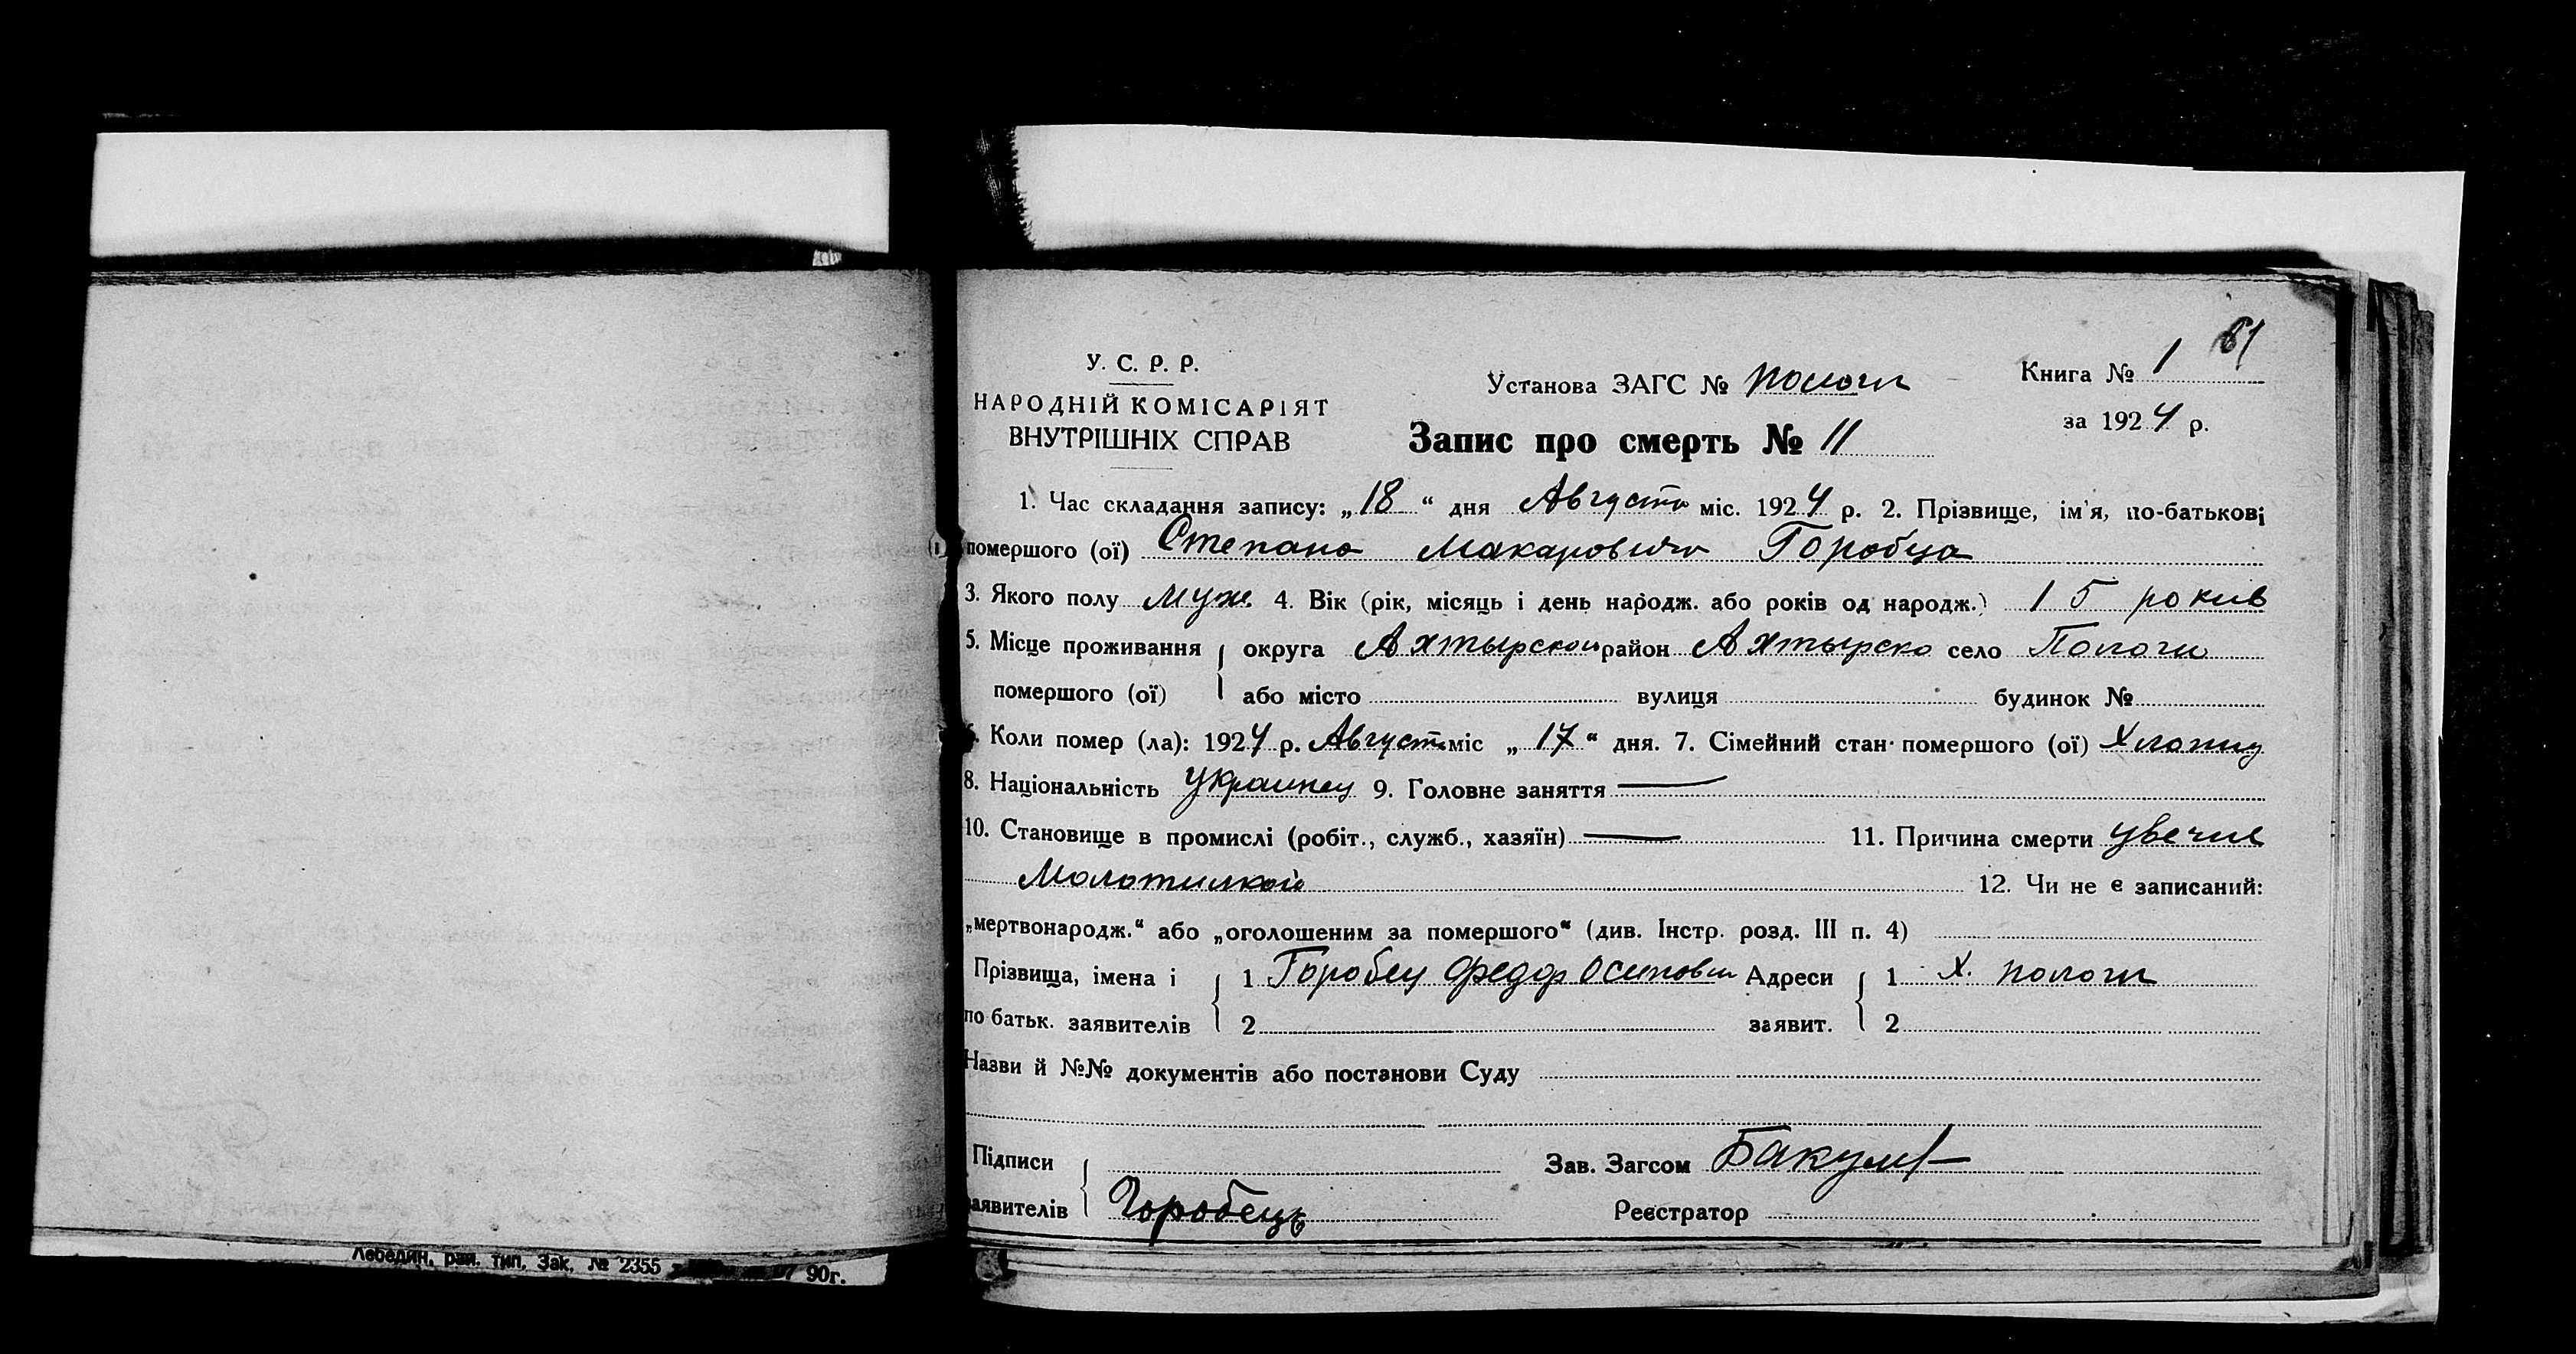 У. С. Р. Р.
НАРОДНІЙ КОМІСАРІЯТ
ВНУТРІШНІХ СПРАВ
Установа ЗАГС № Пологи
Книга № 1
81
за 1924 р.
Запис про смерть № 11
1. Час складання запису: „18“ дня Августа міс. 1924 р. 2. Прізвище, ім'я, по-батькові
помершого (ої) Степана Макаровича Горобца
3. Якого полу муж. 4. Вік (рік, місяць і день народж. або років од народж.) 15 рокив
5. Місце проживання округа Ахтырской район Ахтырско село Пологи
помершого (ої) або місто вулиця будинок №
6. Коли помер (ла): 1924 р. Августа міс „17“ дня. 7. Сімейний стан помершого (ої) Хлопиц
8. Національність Украинец 9. Головне заняття —
10. Становище в промислі (робіт., служб., хазяїн) — 11. Причина смерти увечие
Молотилкой 12. Чи не є записаний:
„мертвонародж.“ або „оголошеним за помершого“ (див. Інстр. розд. III п. 4)
Прізвища, імена і 1 Горобец Федор Осипович Адреси 1 х. Пологи
по батьк. заявителів 2 заявит. 2
Назви й №№ документів або постанови Суду
Підписи Зав. Загсом
заявителів Горобець Реєстратор
Лебедин, рай. тип. Зак. № 2355 90г.